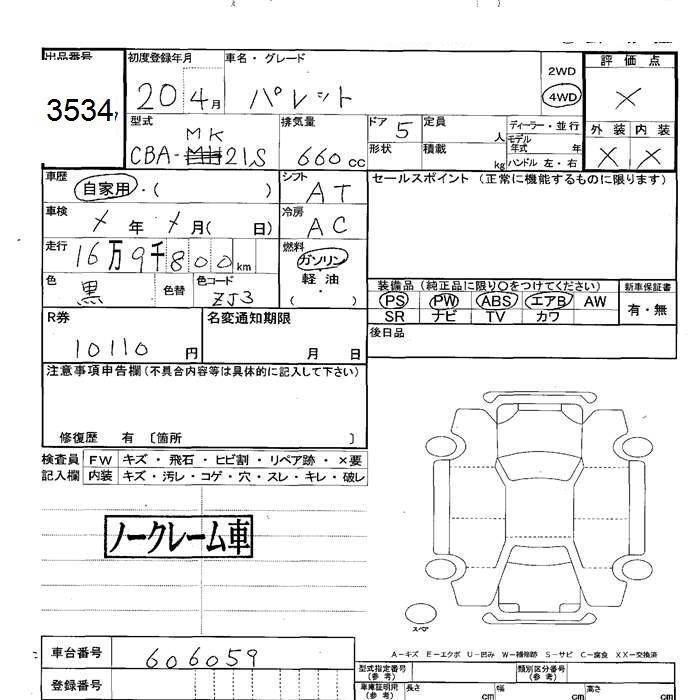 出品番号 初度登録年月 車名・グレード 2WD 評価点
3534 20 4月 パレット 4WD ×
型式 排気量 ドア 5 定員 人 ディーラー・並行 外装 内装
MK モデル年式 年
CBA-MH21S 660cc 形状 積載 kg ハンドル 左・右 × ×
車歴 自家用・( ) シフト AT セールスポイント (正常に機能するものに限ります)
車検 ×年 ×月( 日) 冷房 AC
走行 16万9千800km 燃料 ガソリン
軽・油
( )
色 黒 色替 色コード ZJ3 装備品(純正品に限り○をつけてください) 新車保証書
PS PW ABS エアB AW 有・無
SR ナビ TV カワ
R券 10110円 名変通知期限 月 日 後日品
注意事項申告欄(不具合内容等は具体的に記入して下さい)
修復歴 有 〔箇所 〕
検査員 FW キズ・飛石・ヒビ割・リペア跡・×要
記入欄 内装 キズ・汚レ・コゲ・穴・スレ・キレ・破レ
ノークレーム車
スペア
A-キズ E-エクボ U-凹み W-補修跡 S-サビ C-腐食 XX-交換済
車台番号 606059 型式指定番号(参考) 類別区分番号(参考)
登録番号 車庫証明用(参考) 長さ cm 幅 cm 高さ cm